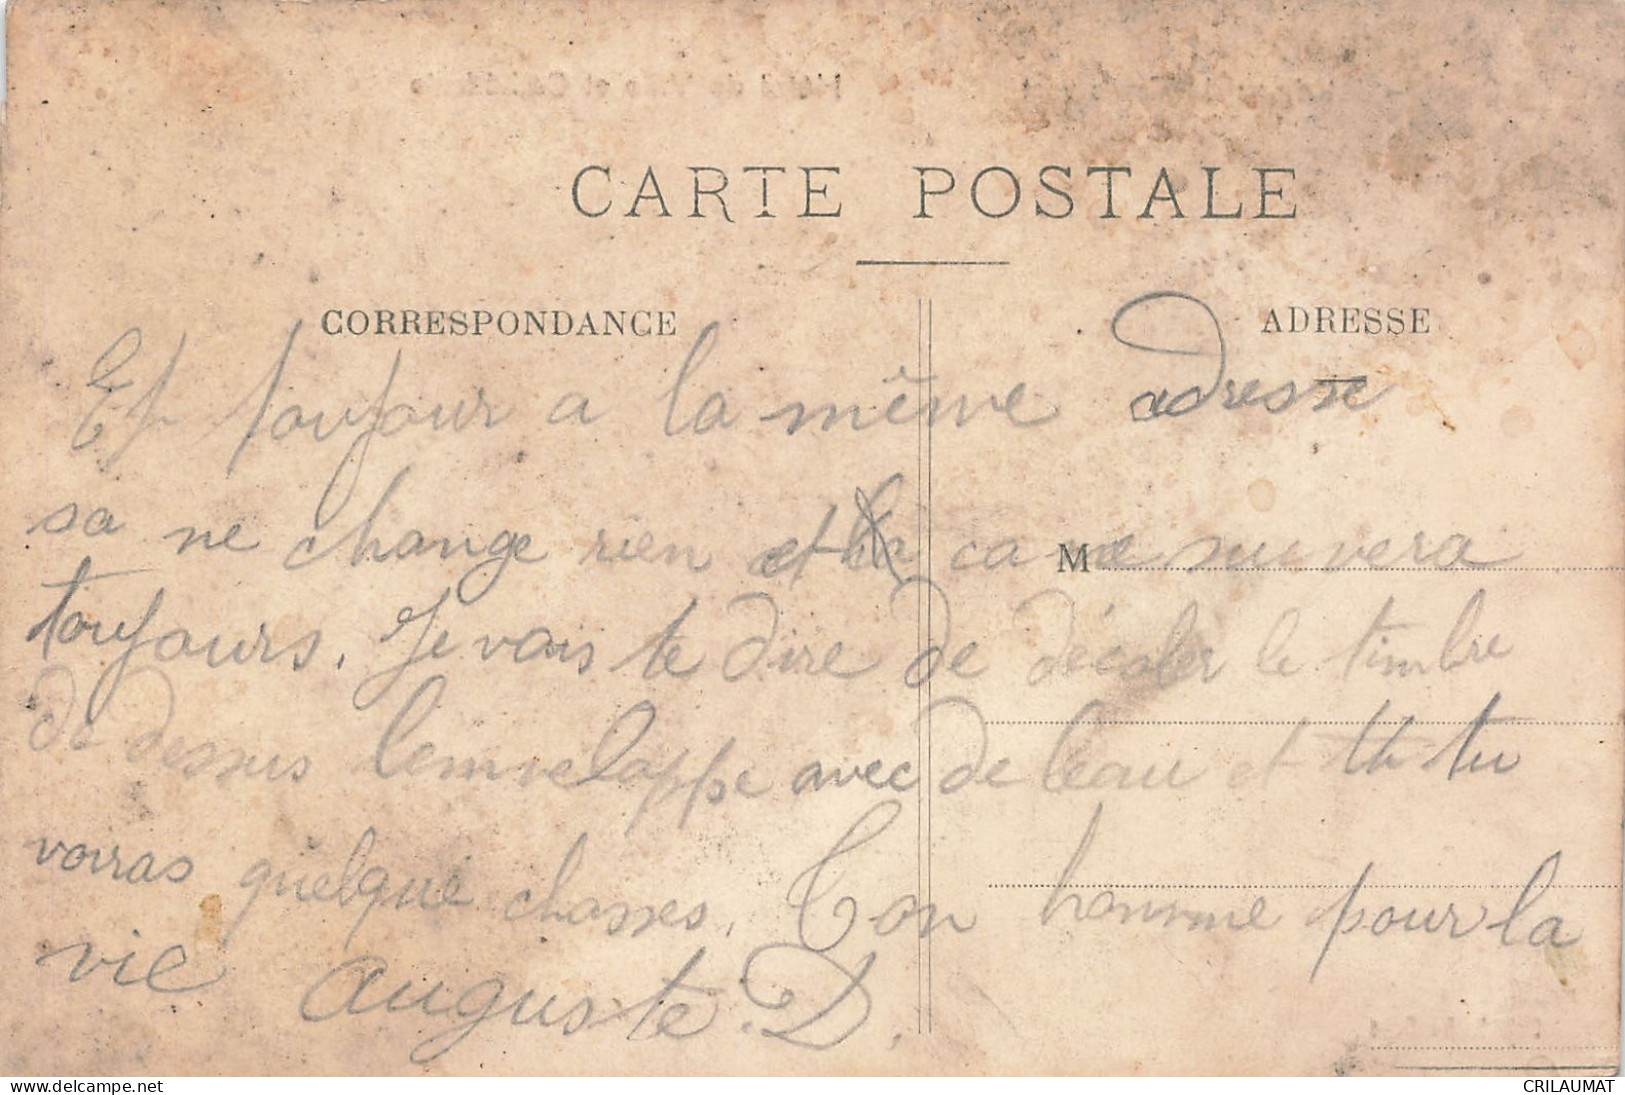 CARTE POSTALE
CORRESPONDANCE
ADRESSE
Et toujour a la même adresse
sa ne change rien et ca me suivera
M
toujours. Je vais te dire de décoler le timbre
de dessus lemvelappe avec de leau et tu
voiras quelque chasses. Ton homme pour la
vie Auguste. D.
www.delcampe.net
CRILAUMAT